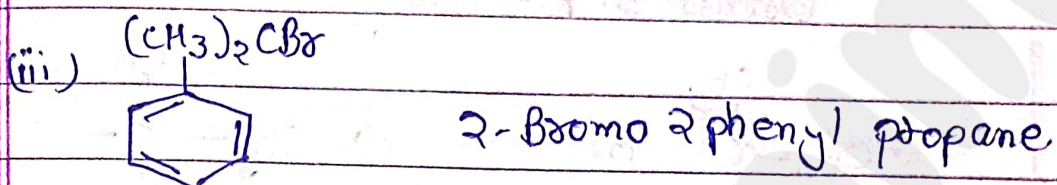 (CH3)2CBr
(iii)
2-Bromo 2 phenyl propane